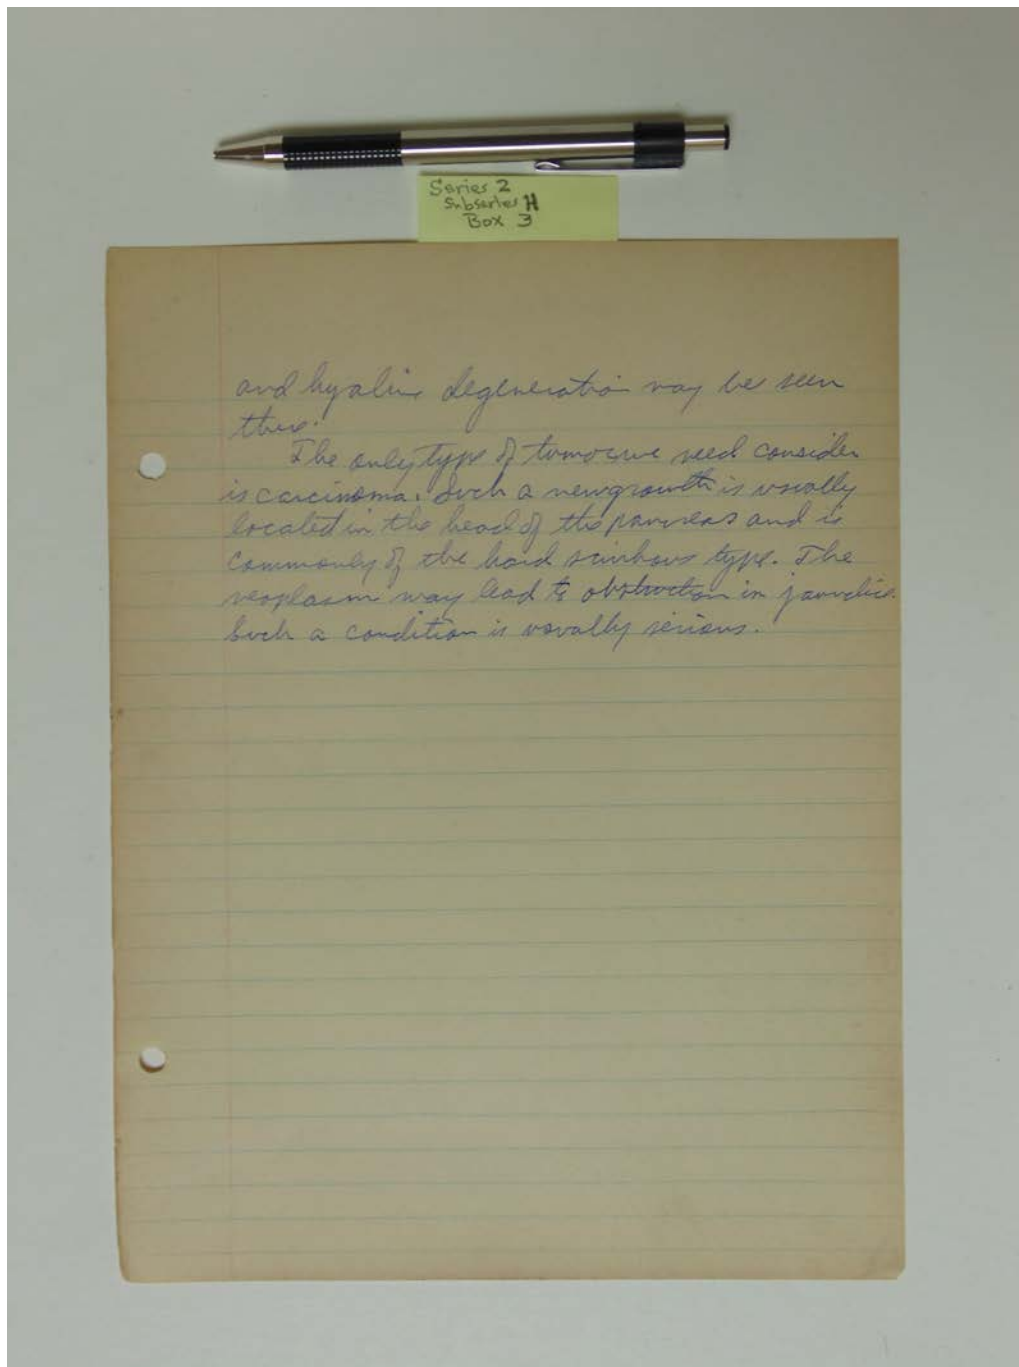 Series 2
Subseries H
Box 3
and hyalin degeneration may be seen
there.
The only type of tumor we need consider
is carcinoma. Such a newgrowth is usually
located in the head of the pancreas and is
commonly of the hard scirrhous type. The
neoplasm may lead to obstruction in jaundice.
Such a condition is usually serious.